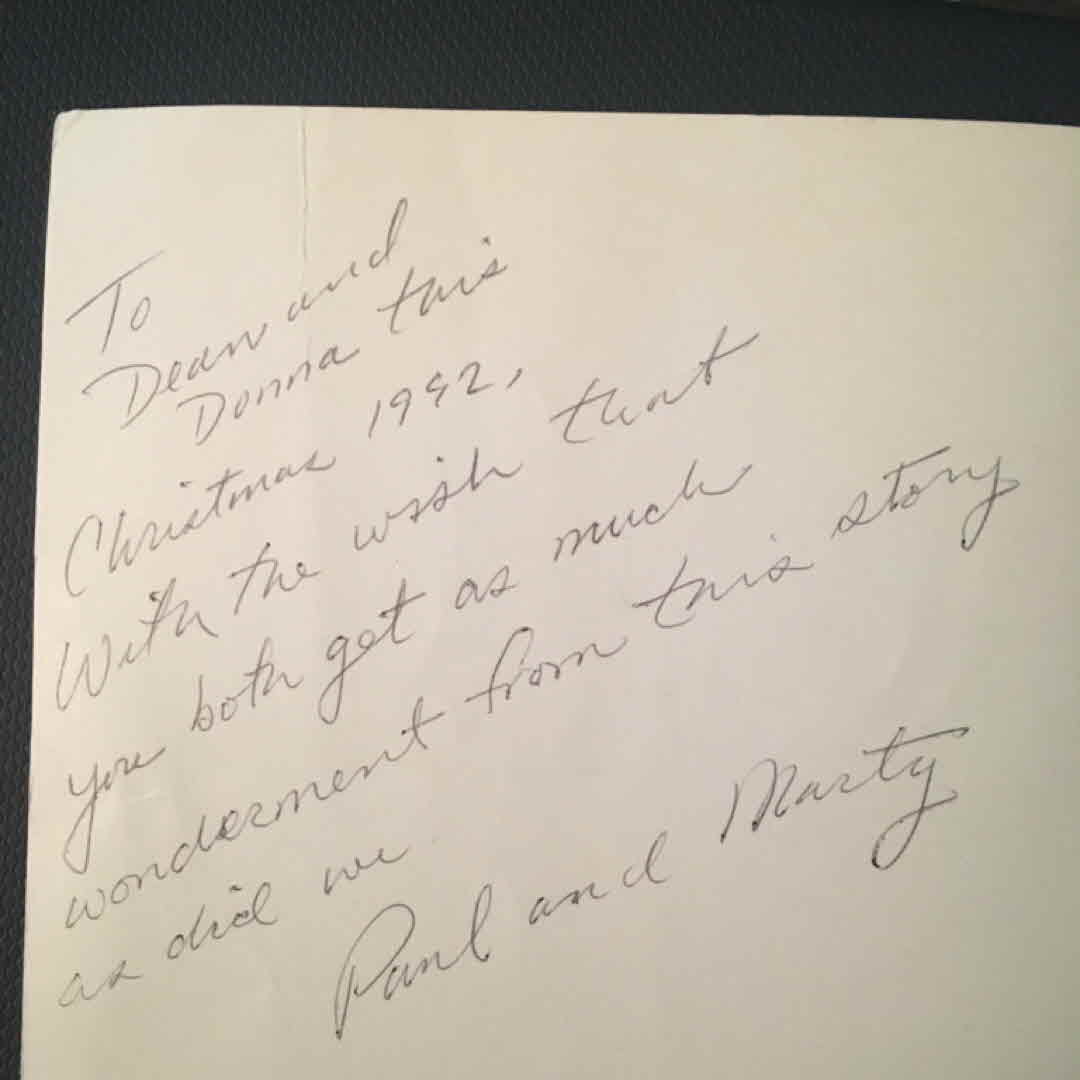 To
Dean and
Donna this
Christmas 1992,
With the wish that
you both get as much
wonderment from this story
as did we.
Paul and Marty